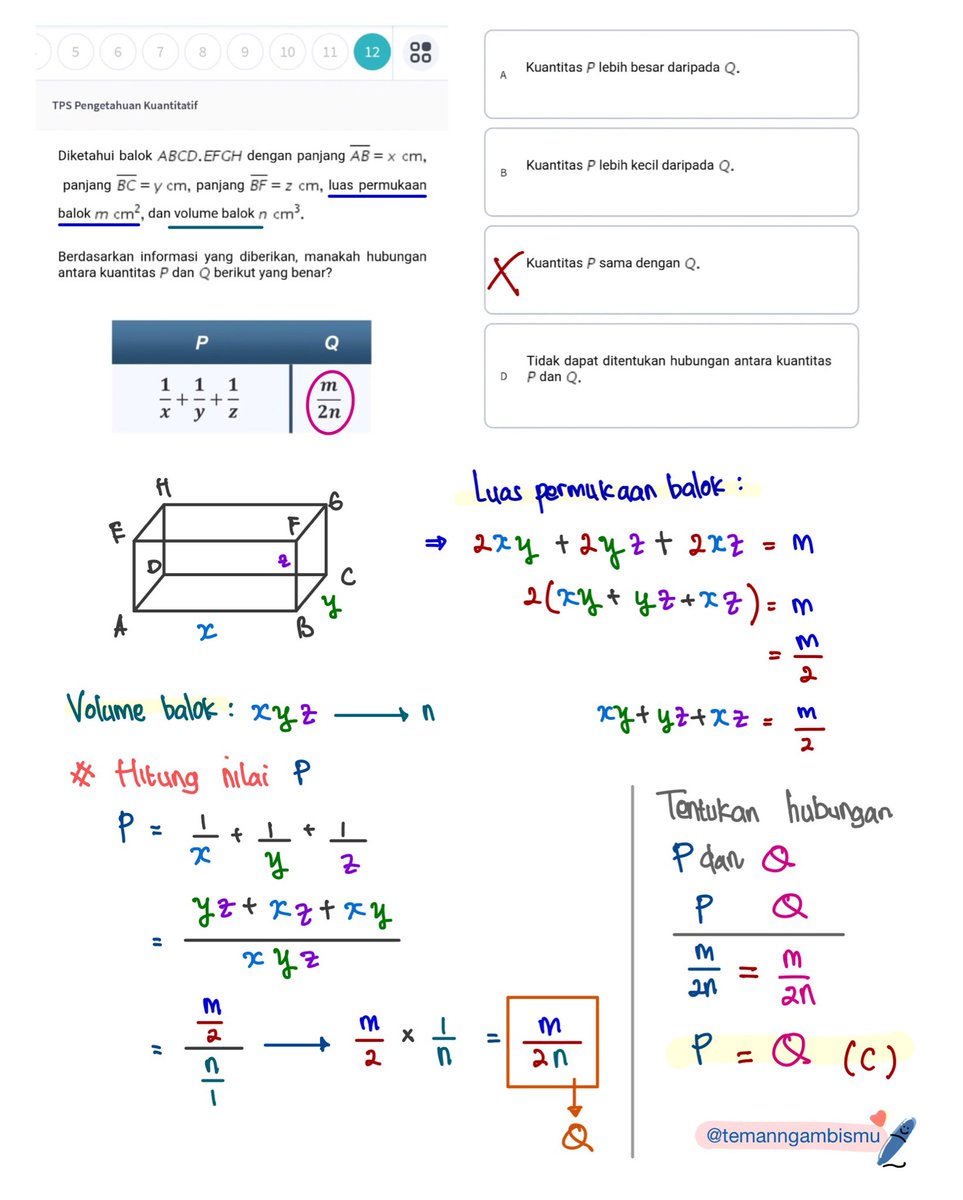 5 6 7 8 9 10 11 12
TPS Pengetahuan Kuantitatif
Diketahui balok ABCD.EFGH dengan panjang A̅B̅ = x cm,
panjang B̅C̅ = y cm, panjang B̅F̅ = z cm, luas permukaan
balok m cm², dan volume balok n cm³.
Berdasarkan informasi yang diberikan, manakah hubungan
antara kuantitas P dan Q berikut yang benar?
P Q
1/x + 1/y + 1/z m/2n
A Kuantitas P lebih besar daripada Q.
B Kuantitas P lebih kecil daripada Q.
X Kuantitas P sama dengan Q.
D Tidak dapat ditentukan hubungan antara kuantitas
P dan Q.
H G
E F
D z C
A x B y
Luas permukaan balok :
⇒ 2xy + 2yz + 2xz = m
2(xy + yz + xz) = m
= m/2
xy + yz + xz = m/2
Volume balok : xyz → n
* Hitung nilai P
P = 1/x + 1/y + 1/z
= (yz + xz + xy)/(xyz)
= (m/2)/(n/1) → m/2 × 1/n = m/2n
Q
Tentukan hubungan
P dan Q
P Q
m/2n = m/2n
P = Q (C)
@temanngambismu